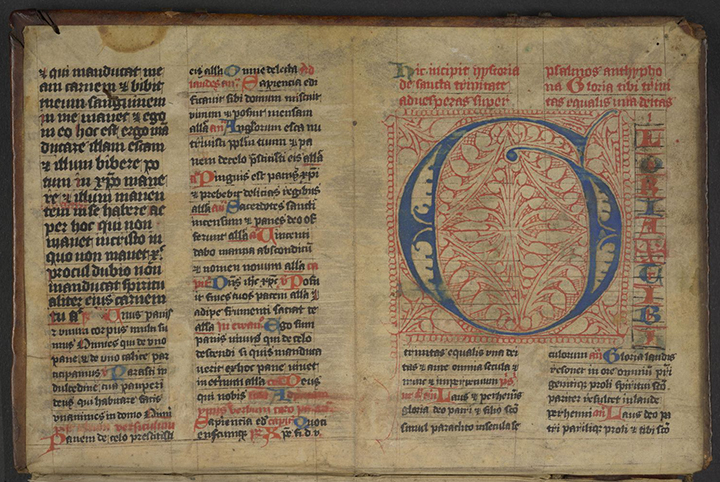 & qui manducat me
am carnem & bibit
meum sanguinem
in me manet & ego
in eo hoc est ergo mā
ducare illam escam
& illum bibere po
tum in xp̄o mane
re & illum manen
tem in se habere ac
per hoc qui non
manet in cristo in
quo non manet xp̄c
procul dubio non
manducat spiritu
aliter eius carnem
Unus panis
& unum corpus multi su
mus omnes qui de uno
pane & de uno calice par
ticipamus Parasti in
dulcedine tua pauperi
deus qui habitare facis
unanimes in domo
Panem de celo prestitisti
eis alla Omne delecta
laudes Sapiencia edi
ficauit sibi domum miscuit
vinum & posuit mensam
alla Angelorum esca nu
triuisti pplm tuum & pa
nem de celo p̄stitisti eis alla
Pinguis est panis xp̄i
& prebebit delicias regibus
alla Sacerdotes sancti
incensum & panes deo of
ferunt alla Uincenti
dabo manna absconditū
& nomen nouum alla
Posu
it fines tuos pacem alla &
adipe frumenti saciat te
alla Ego sum
panis uiuus qui de celo
descendi si quis manduca
uerit ex hoc pane uiuet
in eternum alla Deus
qui nobis
Sapiencia Quoti
enscumque
Hic incipit hystoria
de sancta trinitate
ad vesperas super
psalmos antypho
na Gloria tibi trini
tas equalis una deitas
G
LORIA TIBI
trinitas equalis una dei
tas & ante omnia secula &
nunc & imperpetuum
Laus & perhennis
gloria deo patri & filio scō
simul paraclito in secula se
culorum Gloria laudis
resonet in ore omnium pr̄i
genitique proli spiritui scō
pariter resultet in laude
perhenni Laus deo pa
tri parilique proli & tibi scō